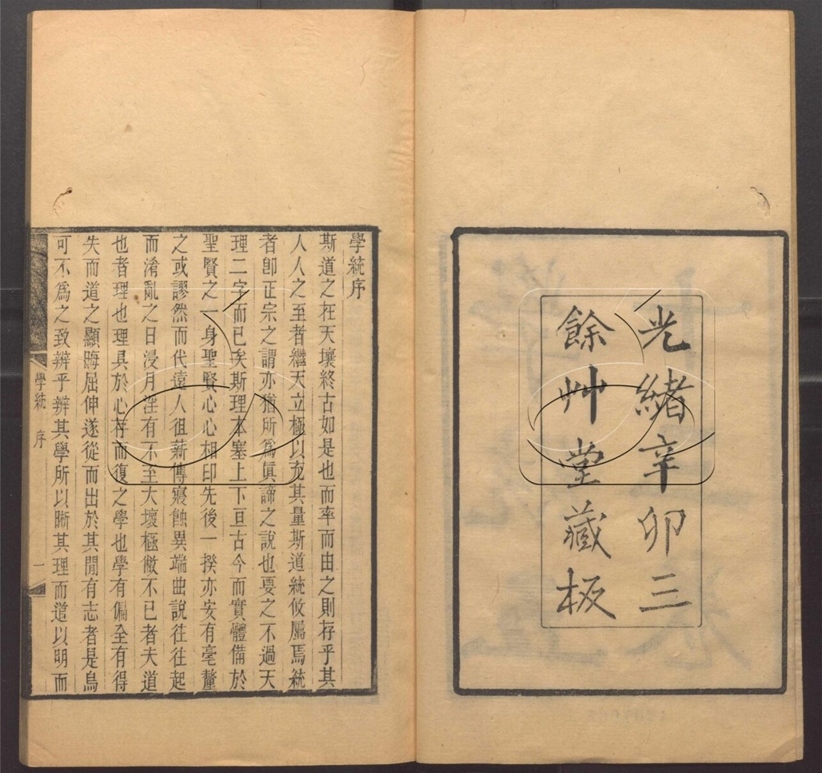 光緒辛卯三
餘艸堂藏板
學統序
斯道之在天壤終古如是也而率而由之則存乎其
人人之至者繼天立極以充其量斯道統攸屬焉統
者卽正宗之謂亦猶所爲眞諦之說也要之不過天
理二字而已矣斯理本塞上下亘古今而實體備於
聖賢之一身聖賢心心相印先後一揆亦安有毫釐
之或謬然而代遠人徂薪傳寖蝕異端曲說往往起
而淆亂之日浸月淫有不至大壞極敝不已者夫道
也者理也理具於心存而復之學也學有偏全有得
失而道之顯晦屈伸遂從而出於其閒有志者是烏
可不爲之致辨乎辨其學所以晰其理而道以明而
學統 序 一